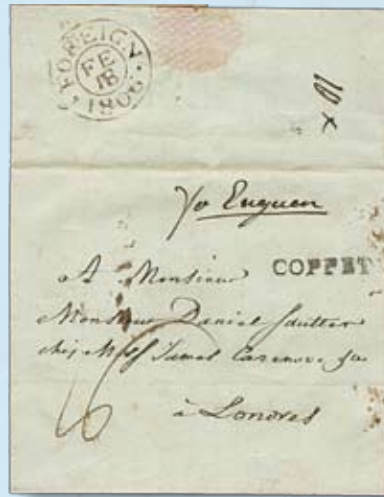 FOREIGN
FE
18
1806
10 x
COPPET
A Monsieur
Monsieur Daniel Sautter
chez James Cazenove
à Londres